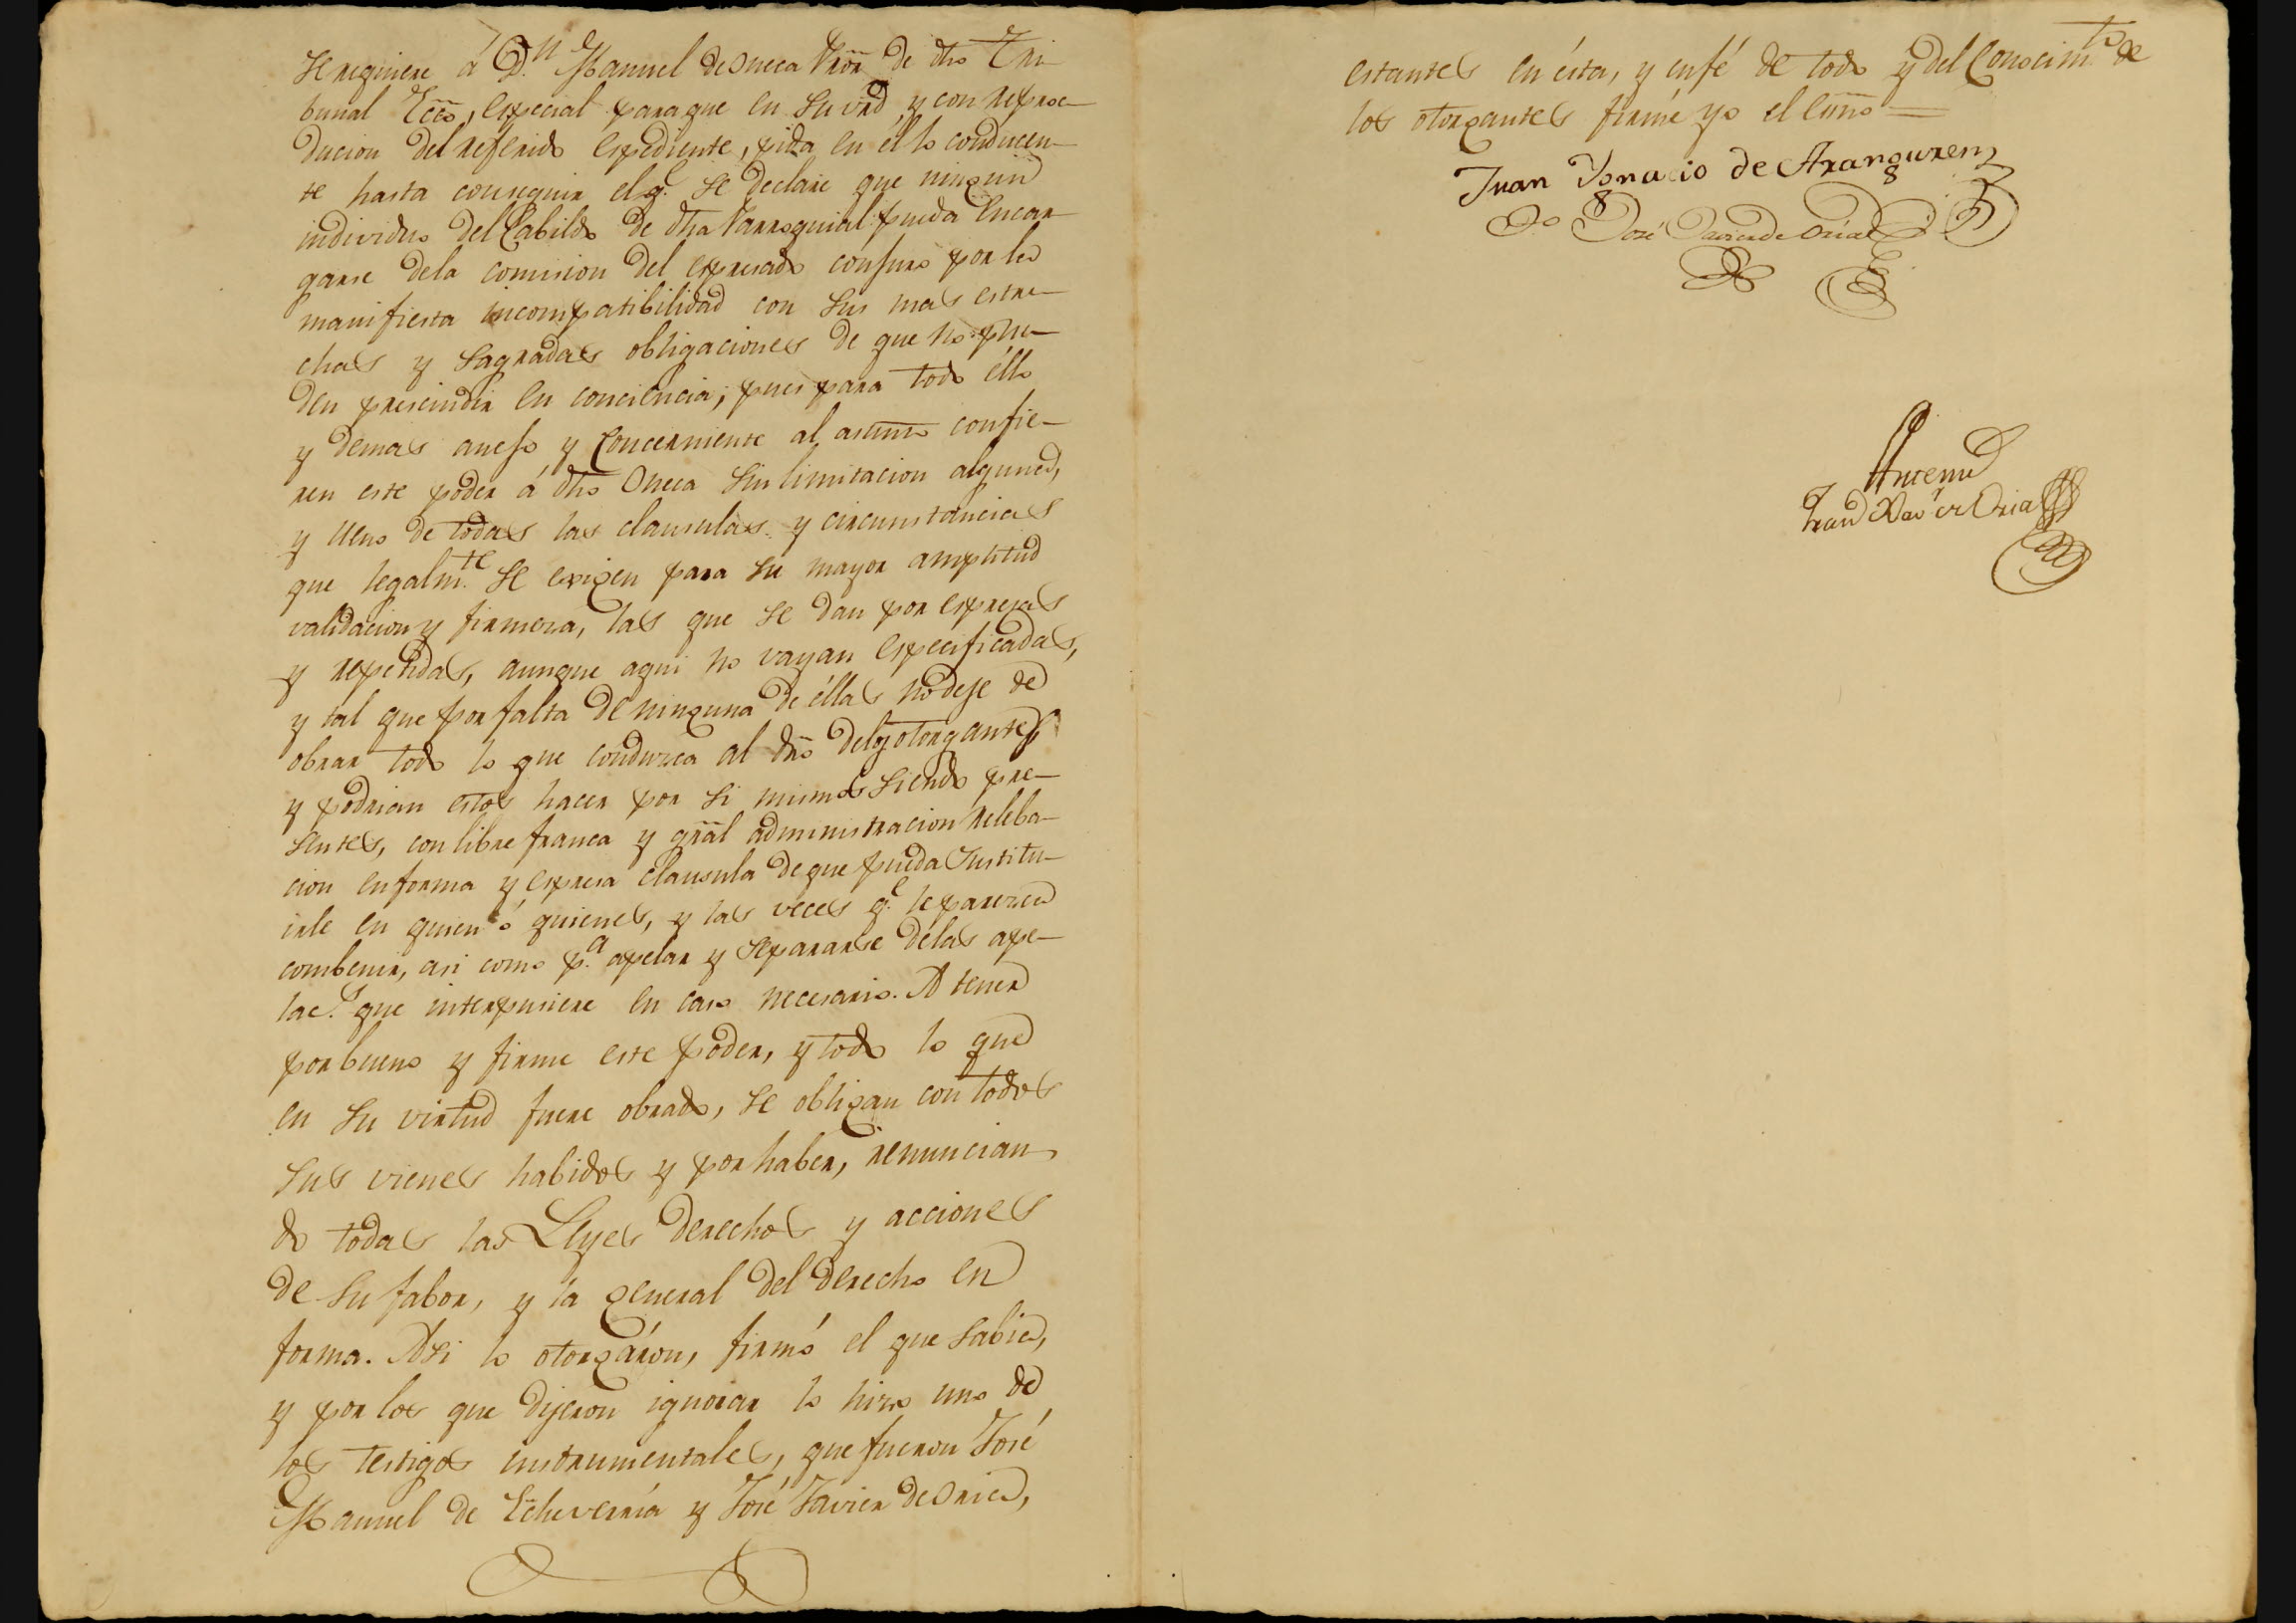 Se requiere á D.n Manuel de Oneca Pror̃ de dh̃o Tri-
bunal Ecc̃o, especial para que en su vrd̃, y con repro-
ducion del referido espediente, pida en él lo conducen-
te hasta conseguir el q.e se declare que ningun
individuo del Cabildo de dh̃a Parroquial pueda encar
garse dela comision del espresado conjuro por la
manifiesta incompatibilidad con sus mas estre-
chas y sagradas obligaciones de que no pue-
den prescindir en conciencia; pues para todo éllo
y demas anejo y concerniente al asunto confie-
ren este poder á dh̃o Oneca sin limitacion alguna,
y lleno de todas las clausulas y circunstancias
que legalm.te se exigen para su mayor amplitud
validacion y firmeza, las que se dan por espresas
y repetidas, aunque aqui no vayan especificadas,
y tal que por falta de ninguna de éllas no deje de
obrar todo lo que conduzca al dr̃o delos otorgantes,
y podrian estos hacer por si mismos siendo pre-
sentes, con libre franca y gr̃al administracion releba-
cion en forma y espresa clausula de que pueda sustitu-
irle en quien ó quienes, y las veces q.e le parezca
combenir, asi como p.a apelar y separarse delas ape-
lac.s que interpusiere en caso necesario. A tener
por bueno y firme este poder, y todo lo que
en su virtud fuere obrado, se obligan con todos
sus vienes habidos y por haber, renuncian
do todas las Leyes derechos y acciones
de su fabor, y la general del derecho en
forma. Asi lo otorgáron, firmó el que sabia,
y por los que dijeron ignorar lo hizo uno de
los testigos instrumentales, que fueron José
Manuel de Echeverría y José Javier de Oria,
estantes en ésta, y en fé de todo y del Conocim.to de
los otorgantes firmé yo el Essño=
Juan Ygnacio de Aranguren
José Javier de Oria
Antemi
Fran.co Xav.er Oria